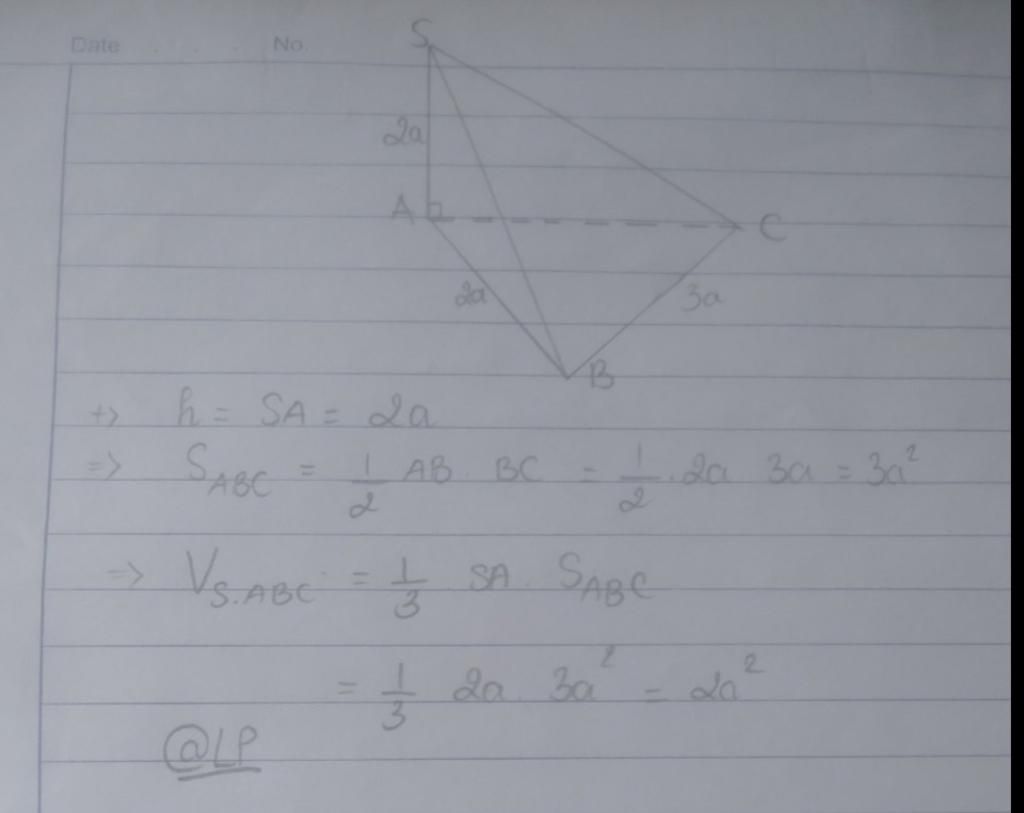 Date . . . . No.
S
2a
A
C
2a
3a
B
+> h = SA = 2a
=> S_ABC = 1/2 AB . BC = 1/2 . 2a 3a = 3a²
=> V_S.ABC = 1/3 SA . S_ABC
= 1/3 2a . 3a² = 2a²
@LP